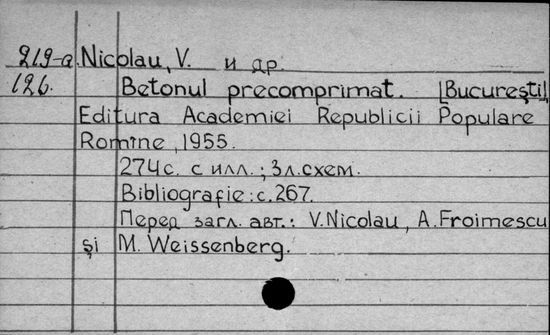 219-a Nicolau, V. и др.
126. Betonul precomprimat. [Bucureşti]
Editura Academiei Republicii Populare
Romîne, 1955.
274 с. с илл.; 3 л. схем.
Bibliografie: с. 267.
Перед загл. авт.: V. Nicolau, A. Froimescu
şi M. Weissenberg.